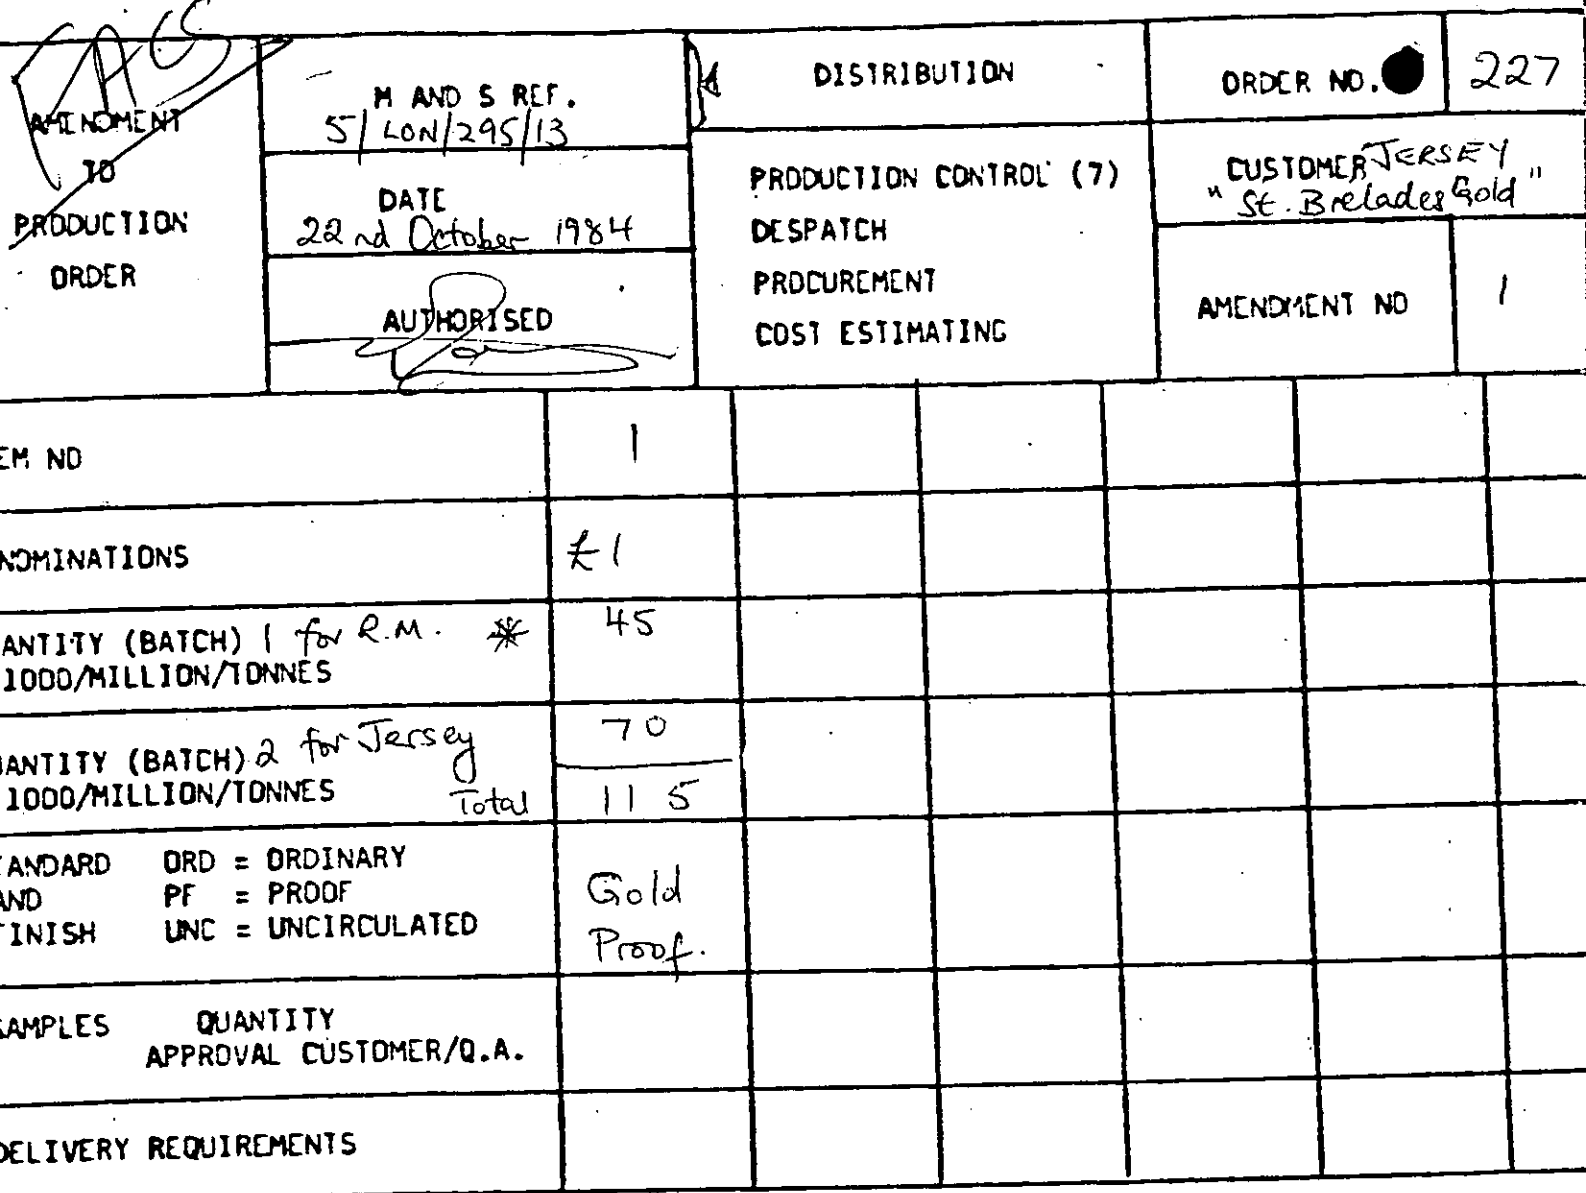 AMENDMENT
TO
PRODUCTION
ORDER
M AND S REF.
5/LON/295/13
DATE
22nd October 1984
AUTHORISED
DISTRIBUTION
PRODUCTION CONTROL (7)
DESPATCH
PROCUREMENT
COST ESTIMATING
ORDER NO. 227
CUSTOMER JERSEY
"St. Brelades Gold"
AMENDMENT NO 1
EM NO 1
NOMINATIONS £1
ANTITY (BATCH) 1 for R.M. * 45
1000/MILLION/TONNES
ANTITY (BATCH) 2 for Jersey 70
1000/MILLION/TONNES Total 115
TANDARD ORD = ORDINARY
AND PF = PROOF
FINISH UNC = UNCIRCULATED
Gold
Proof.
SAMPLES QUANTITY
APPROVAL CUSTOMER/Q.A.
DELIVERY REQUIREMENTS